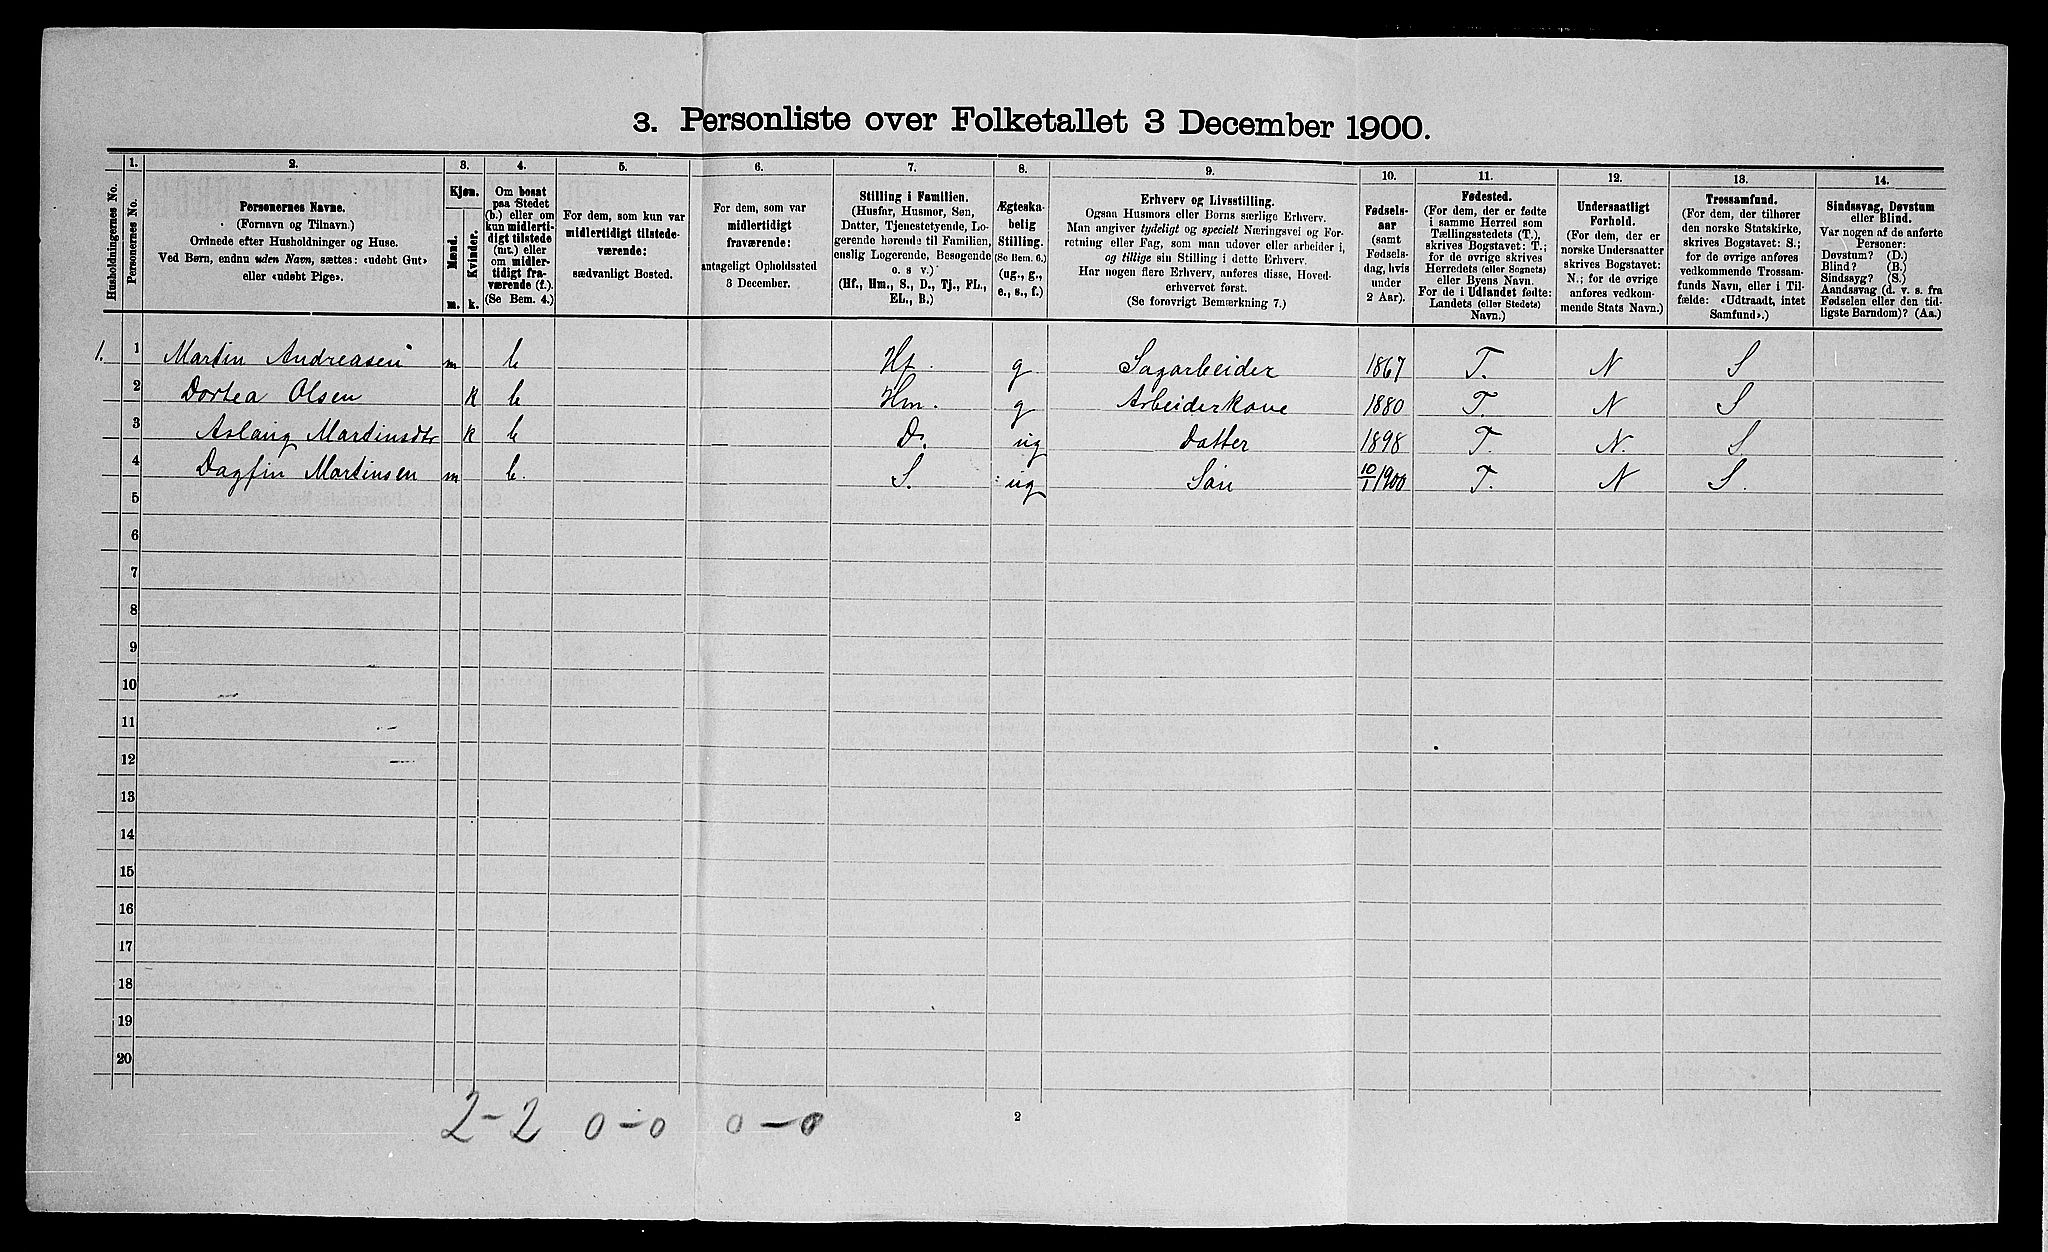 3. Personliste over Folketallet 3 December 1900.
Husholdningernes No.
1.
Personernes No.
2.
Personernes Navne.
(Fornavn og Tilnavn.)
Ordnede efter Husholdninger og Huse.
Ved Børn, endnu uden Navn, sættes: «udøbt Gut»
eller «udøbt Pige».
3.
Kjøn.
Mænd.
Kvinder.
m.
k.
4.
Om bosat
paa Stedet
(b.) eller om
kun midlerti-
digt tilstede
(mt.) eller
om midler-
tidigt fra-
værende (f.).
(Se Bem. 4.)
5.
For dem, som kun var
midlertidigt tilstede-
værende:
sædvanligt Bosted.
6.
For dem, som var
midlertidigt
fraværende:
antageligt Opholdssted
3 December.
7.
Stilling i Familien.
(Husfar, Husmor, Søn,
Datter, Tjenestetyende, Lo-
gerende hørende til Familien,
enslig Logerende, Besøgende
o. s v.)
(Hf., Hm., S., D., Tj., FL.,
EL., B.)
8.
Ægteska-
belig
Stilling.
(Se Bem. 6.)
(ug., g.,
e., s., f.)
9.
Erhverv og Livsstilling.
Ogsaa Husmors eller Børns særlige Erhverv.
Man angiver tydeligt og specielt Næringsvei og For-
retning eller Fag, som man udøver eller arbeider i,
og tillige sin Stilling i dette Erhverv.
Har nogen flere Erhverv, anføres disse, Hoved-
erhvervet først.
(Se forøvrigt Bemærkning 7.)
10.
Fødsels-
aar
(samt
Fødsels-
dag, hvis
under
2 Aar).
11.
Fødested.
(For dem, der er fødte
i samme Herred som
Tællingsstedets (T.),
skrives Bogstavet: T.;
for de øvrige skrives
Herredets (eller Sognets)
eller Byens Navn.
For de i Udlandet fødte:
Landets (eller Stedets)
Navn.)
12.
Undersaatligt
Forhold.
(For dem, der er
norske Undersaatter
skrives Bogstavet:
N.; for de øvrige
anføres vedkom-
mende Stats Navn.)
13.
Trossamfund.
(For dem, der tilhører
den norske Statskirke,
skrives Bogstavet: S.;
for de øvrige anføres
vedkommende Trossam-
funds Navn, eller i Til-
fælde: «Udtraadt, intet
Samfund».)
14.
Sindssvag, Døvstum
eller Blind.
Var nogen af de anførte
Personer:
Døvstum? (D.)
Blind? (B.)
Sindssyg? (S.)
Aandssvag (d. v. s. fra
Fødselen eller den tid-
ligste Barndom)? (Aa.)
1. 1 Martin Andreasen m b Hf. g Sagarbeider 1867 T. N S
2 Dortea Olsen k b Hm. g Arbeiderkone 1880 T. N S
3 Aslaug Martinsdtr k b D. ug Datter 1898 T. N. S
4 Dagfin Martinsen m b. S. ug Søn 10/1 1900 T. N S.
5
6
7
8
9
10
11
12
13
14
15
16
17
18
19
20
2-2 0-0 0-0
2